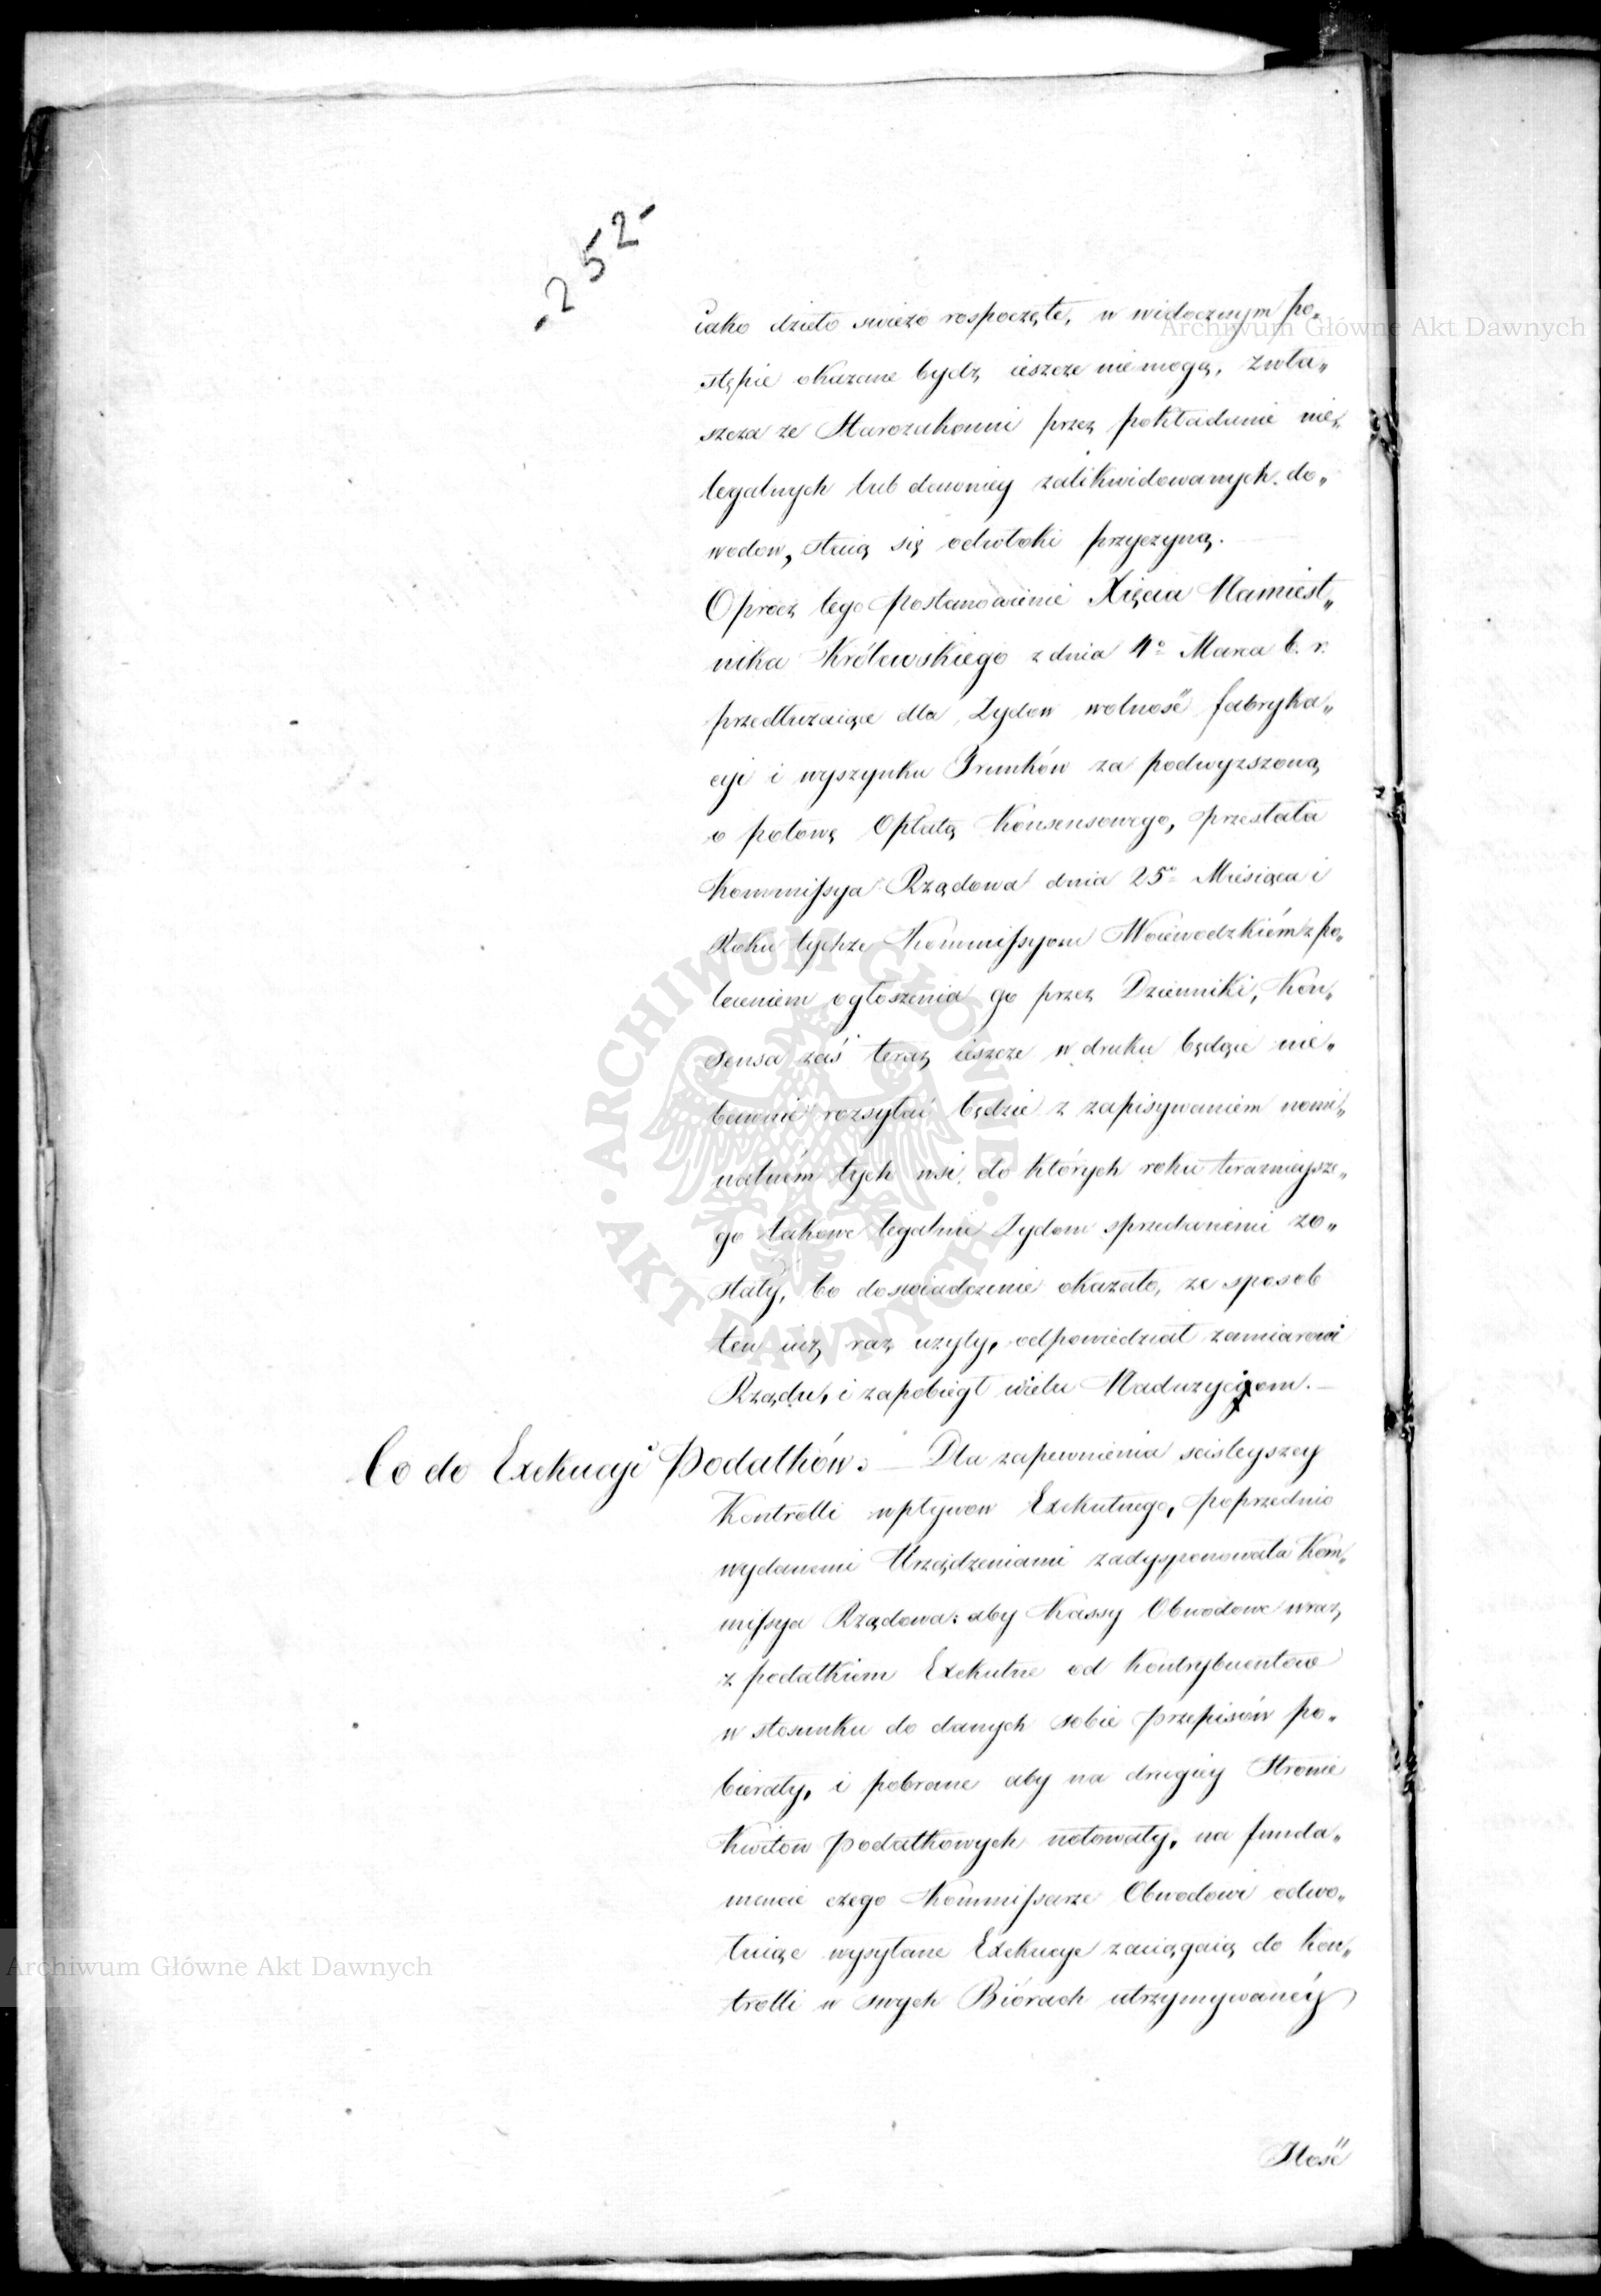 -252-
iako dzieło swieżo rospoczęte, w widocznym po„
stępie okazane bydź ieszcze niemogą, zwła„
szcza ze Starozakonni przez pokładanie nie„
legalnych lub dawniey zalikwidowanych do„
wodow, staią się odwłoki przyczyną.
Oprocz tego postanowienie Xięcia Namiest„
nika Królewskiego z dnia 4º Marca b. r.
przedłużaiące dla Zydow wolność fabryka„
cyi i wyszynku Trunków za podwyzszoną
o połowę Opłatą Konsensowego, przesłała
Kommissya Rządowa dnia 25º Miesiąca i
Roku tychże Kommissyom Woiewodzkiém z po„
leceniem ogłoszenia go przez Dzienniki, Kon„
sensa zaś teraz ieszcze w druku będące nie„
bawnie rozsyłać będzie z zapisywaniem nomi„
nalném tych wsi, do których roku teraznieysze„
go takowe legalnie Zydom sprzedanemi zo„
stały, bo doswiadczenie okazało, ze sposob
ten iuz raz uzyty, odpowiedział zamiarowi
Rządu, i zapobiegł wielu Naduzyciom.—
Co do Exekucyi Podatków. — Dla zapewnienia scisleyszey
Kontrolli wpływow Exekutnego, poprzednio
wydanemi Urządzeniami zadysponowała Kom„
missya Rządowa: aby Kassy Obwodowe wraz
z podatkiem Exekutne od kontrybuentow
w stosunku do danych sobie przepisów po„
bierały, i pobrane aby na drugiey Stronie
Kwitow podatkowych notowały, na funda„
mencie czego Kommissarze Obwodowi odwo„
łuiąc wysyłane Exekucye zaciągaią do kon„
trolli w swych Biórach utrzymywanéy
Ilość
Archiwum Główne Akt Dawnych
Archiwum Główne Akt Dawnych
ARCHIWUM GŁÓWNE · AKT DAWNYCH ·